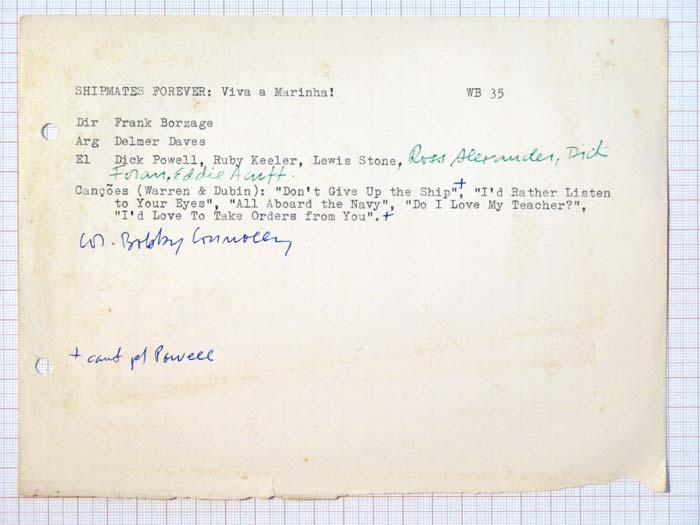 SHIPMATES FOREVER: Viva a Marinha! WB 35
Dir Frank Borzage
Arg Delmer Daves
El Dick Powell, Ruby Keeler, Lewis Stone, Ross Alexander, Dick
Foran, Eddie Acuff.
Canções (Warren & Dubin): "Don't Give Up the Ship"+, "I'd Rather Listen
to Your Eyes", "All Aboard the Navy", "Do I Love My Teacher?",
"I'd Love To Take Orders from You".+
Cor. Bobby Connolly
+ cant p/ Powell